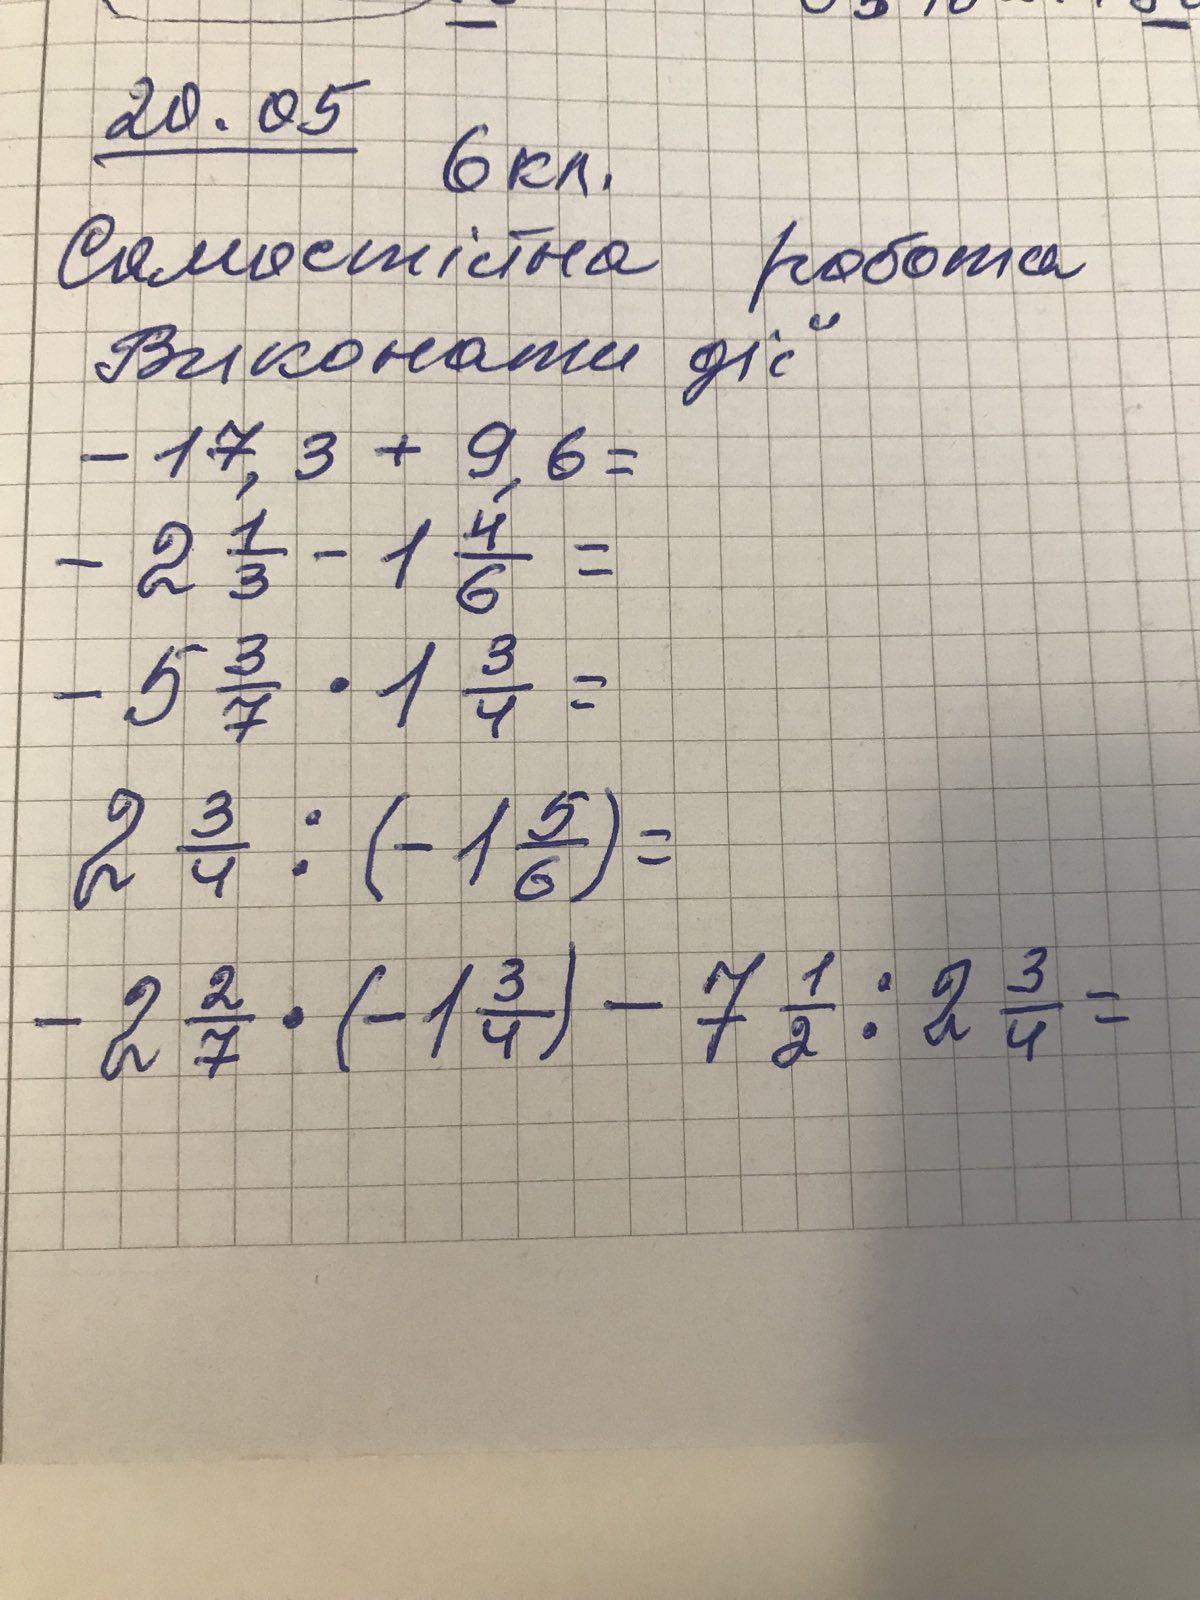 20.05
6 кл.
Самостійна робота
Виконати дії
- 17,3 + 9,6 =
- 2 1/3 - 1 4/6 =
- 5 3/7 · 1 3/4 =
2 3/4 : (- 1 5/6) =
- 2 2/7 · (- 1 3/4) - 7 1/2 : 2 3/4 =